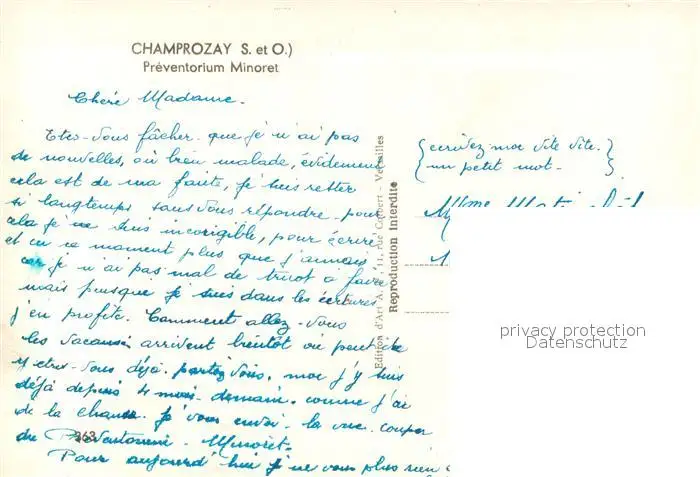 CHAMPROZAY S. et O.)
Préventorium Minoret
Chère Madame.
Etes-vous fâcher que je n'ai pas
de nouvelles, où bien malade, évidement
cela est de ma faute, je suis rester
si longtemps sans vous répondre. pour
cela je ne suis incorigible, pour écrire
et en ce moment plus que j'amais
car je n'ai pas mal de tricot a faire
mais puisque je suis dans les écritures
j'en profite. Comment allez-vous
les vacances arrivent bientôt ou peut être
y etres-vous déjà. partez vous. moi j'y suis
déjà depuis 4 mois. demain. comme j'ai
de la chance. je vous envoi. la vue.
du Préventorium. Minoret.
363
Pour aujourd'hui je ne vous plus rien
Edition d'Art, 11, rue Colbert - Versailles
Reproduction Interdite
{ecrivez moi vite vite.}
{un petit mot-}
Mme
privacy protection
Datenschutz